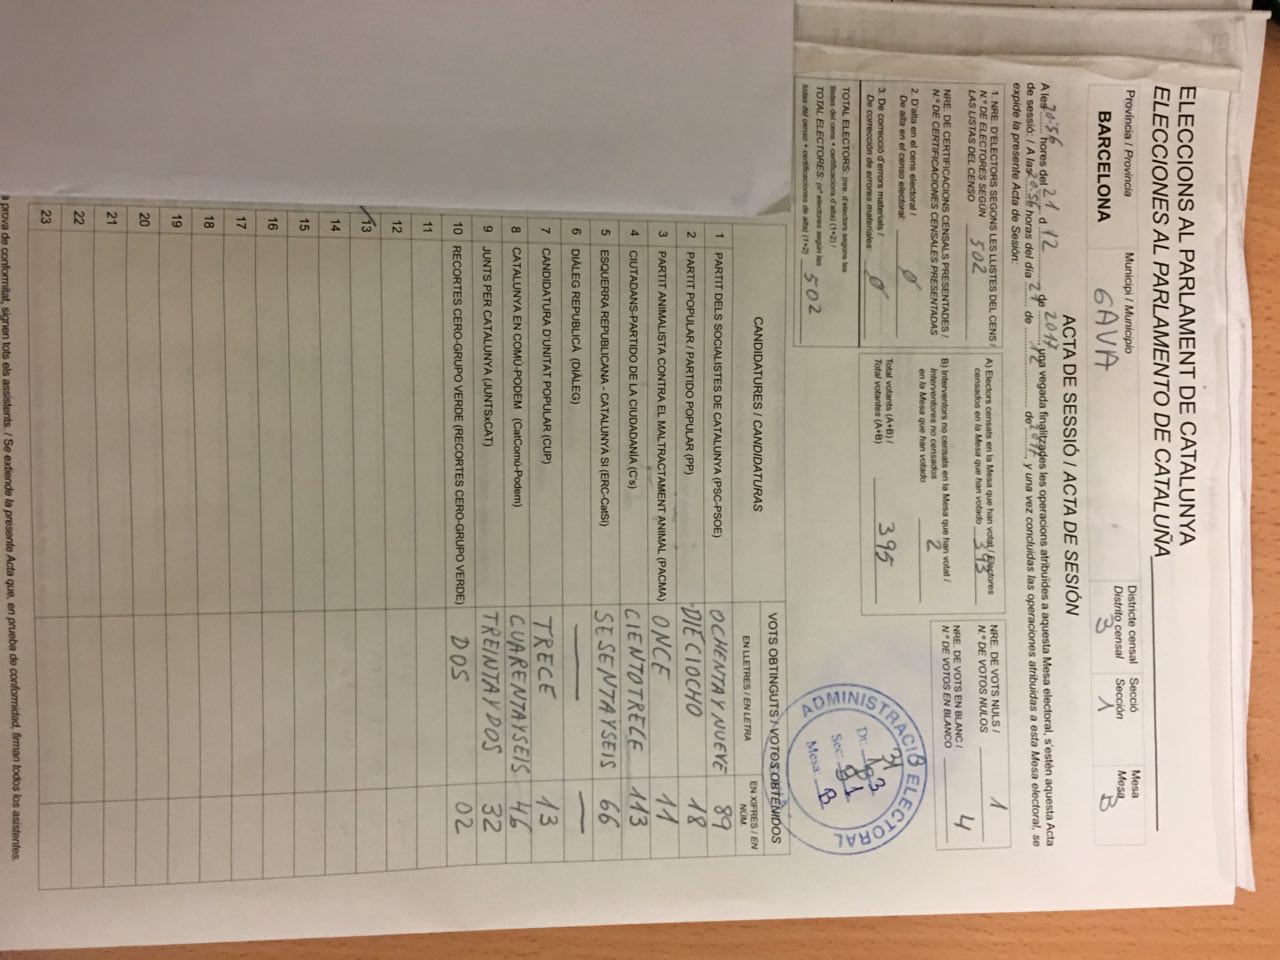 ELECCIONS AL PARLAMENT DE CATALUNYA
ELECCIONES AL PARLAMENTO DE CATALUÑA
Província / Provincia
BARCELONA
Municipi / Municipio
GAVA
Districte censal
Distrito censal
3
Secció
Sección
1
Mesa
Mesa
B
ACTA DE SESSIÓ / ACTA DE SESIÓN
A les 20:56 hores del 21 d 12 de 2017 una vegada finalitzades les operacions atribuïdes a aquesta Mesa electoral, s'estén aquesta Acta
de sessió: / A las 20:56 horas del día 21 de 12 de 2017, y una vez concluidas las operaciones atribuidas a esta Mesa electoral, se
expide la presente Acta de Sesión:
1. NRE. D'ELECTORS SEGONS LES LLISTES DEL CENS /
N.º DE ELECTORES SEGÚN
LAS LISTAS DEL CENSO 502
NRE. DE CERTIFICACIONS CENSALS PRESENTADES /
N.º DE CERTIFICACIONES CENSALES PRESENTADAS
2. D'alta en el cens electoral /
De alta en el censo electoral: Ø
3. De correcció d'errors materials /
De corrección de errores materiales: Ø
TOTAL ELECTORS: (nre. d'electors segons les
llistes del cens + certificacions d'alta) (1+2) /
TOTAL ELECTORES: (nº electores según las
listas del censo + certificaciones de alta) (1+2) 502
A) Electors censats en la Mesa que han votat / Electores
censados en la Mesa que han votado 393
B) Interventors no censats en la Mesa que han votat /
Interventores no censados
en la Mesa que han votado 2
Total votants (A+B) /
Total votantes (A+B) 395
NRE. DE VOTS NULS /
N.º DE VOTOS NULOS 1
NRE. DE VOTS EN BLANC /
N.º DE VOTOS EN BLANCO 4
ADMINISTRACIÓ ELECTORAL
Dt: 3
Sec: 1
Mesa: B
CANDIDATURES / CANDIDATURAS
VOTS OBTINGUTS / VOTOS OBTENIDOS
EN LLETRES / EN LETRA
EN XIFRES / EN
NÚM.
1 PARTIT DELS SOCIALISTES DE CATALUNYA (PSC-PSOE) OCHENTA Y NUEVE 89
2 PARTIT POPULAR / PARTIDO POPULAR (PP) DIECIOCHO 18
3 PARTIT ANIMALISTA CONTRA EL MALTRACTAMENT ANIMAL (PACMA) ONCE 11
4 CIUTADANS-PARTIDO DE LA CIUDADANÍA (C's) CIENTOTRECE 113
5 ESQUERRA REPUBLICANA - CATALUNYA SI (ERC-CatSí) SESENTAYSEIS 66
6 DIÀLEG REPUBLICÀ (DIÀLEG) — —
7 CANDIDATURA D'UNITAT POPULAR (CUP) TRECE 13
8 CATALUNYA EN COMÚ-PODEM (CatComú-Podem) CUARENTAYSEIS 46
9 JUNTS PER CATALUNYA (JUNTSxCAT) TREINTA Y DOS 32
10 RECORTES CERO-GRUPO VERDE (RECORTES CERO-GRUPO VERDE) DOS 02
11
12
13
14
15
16
17
18
19
20
21
22
23
a prova de conformitat, signen tots els assistents. / Se extiende la presente Acta que, en prueba de conformidad, firman todos los asistentes.